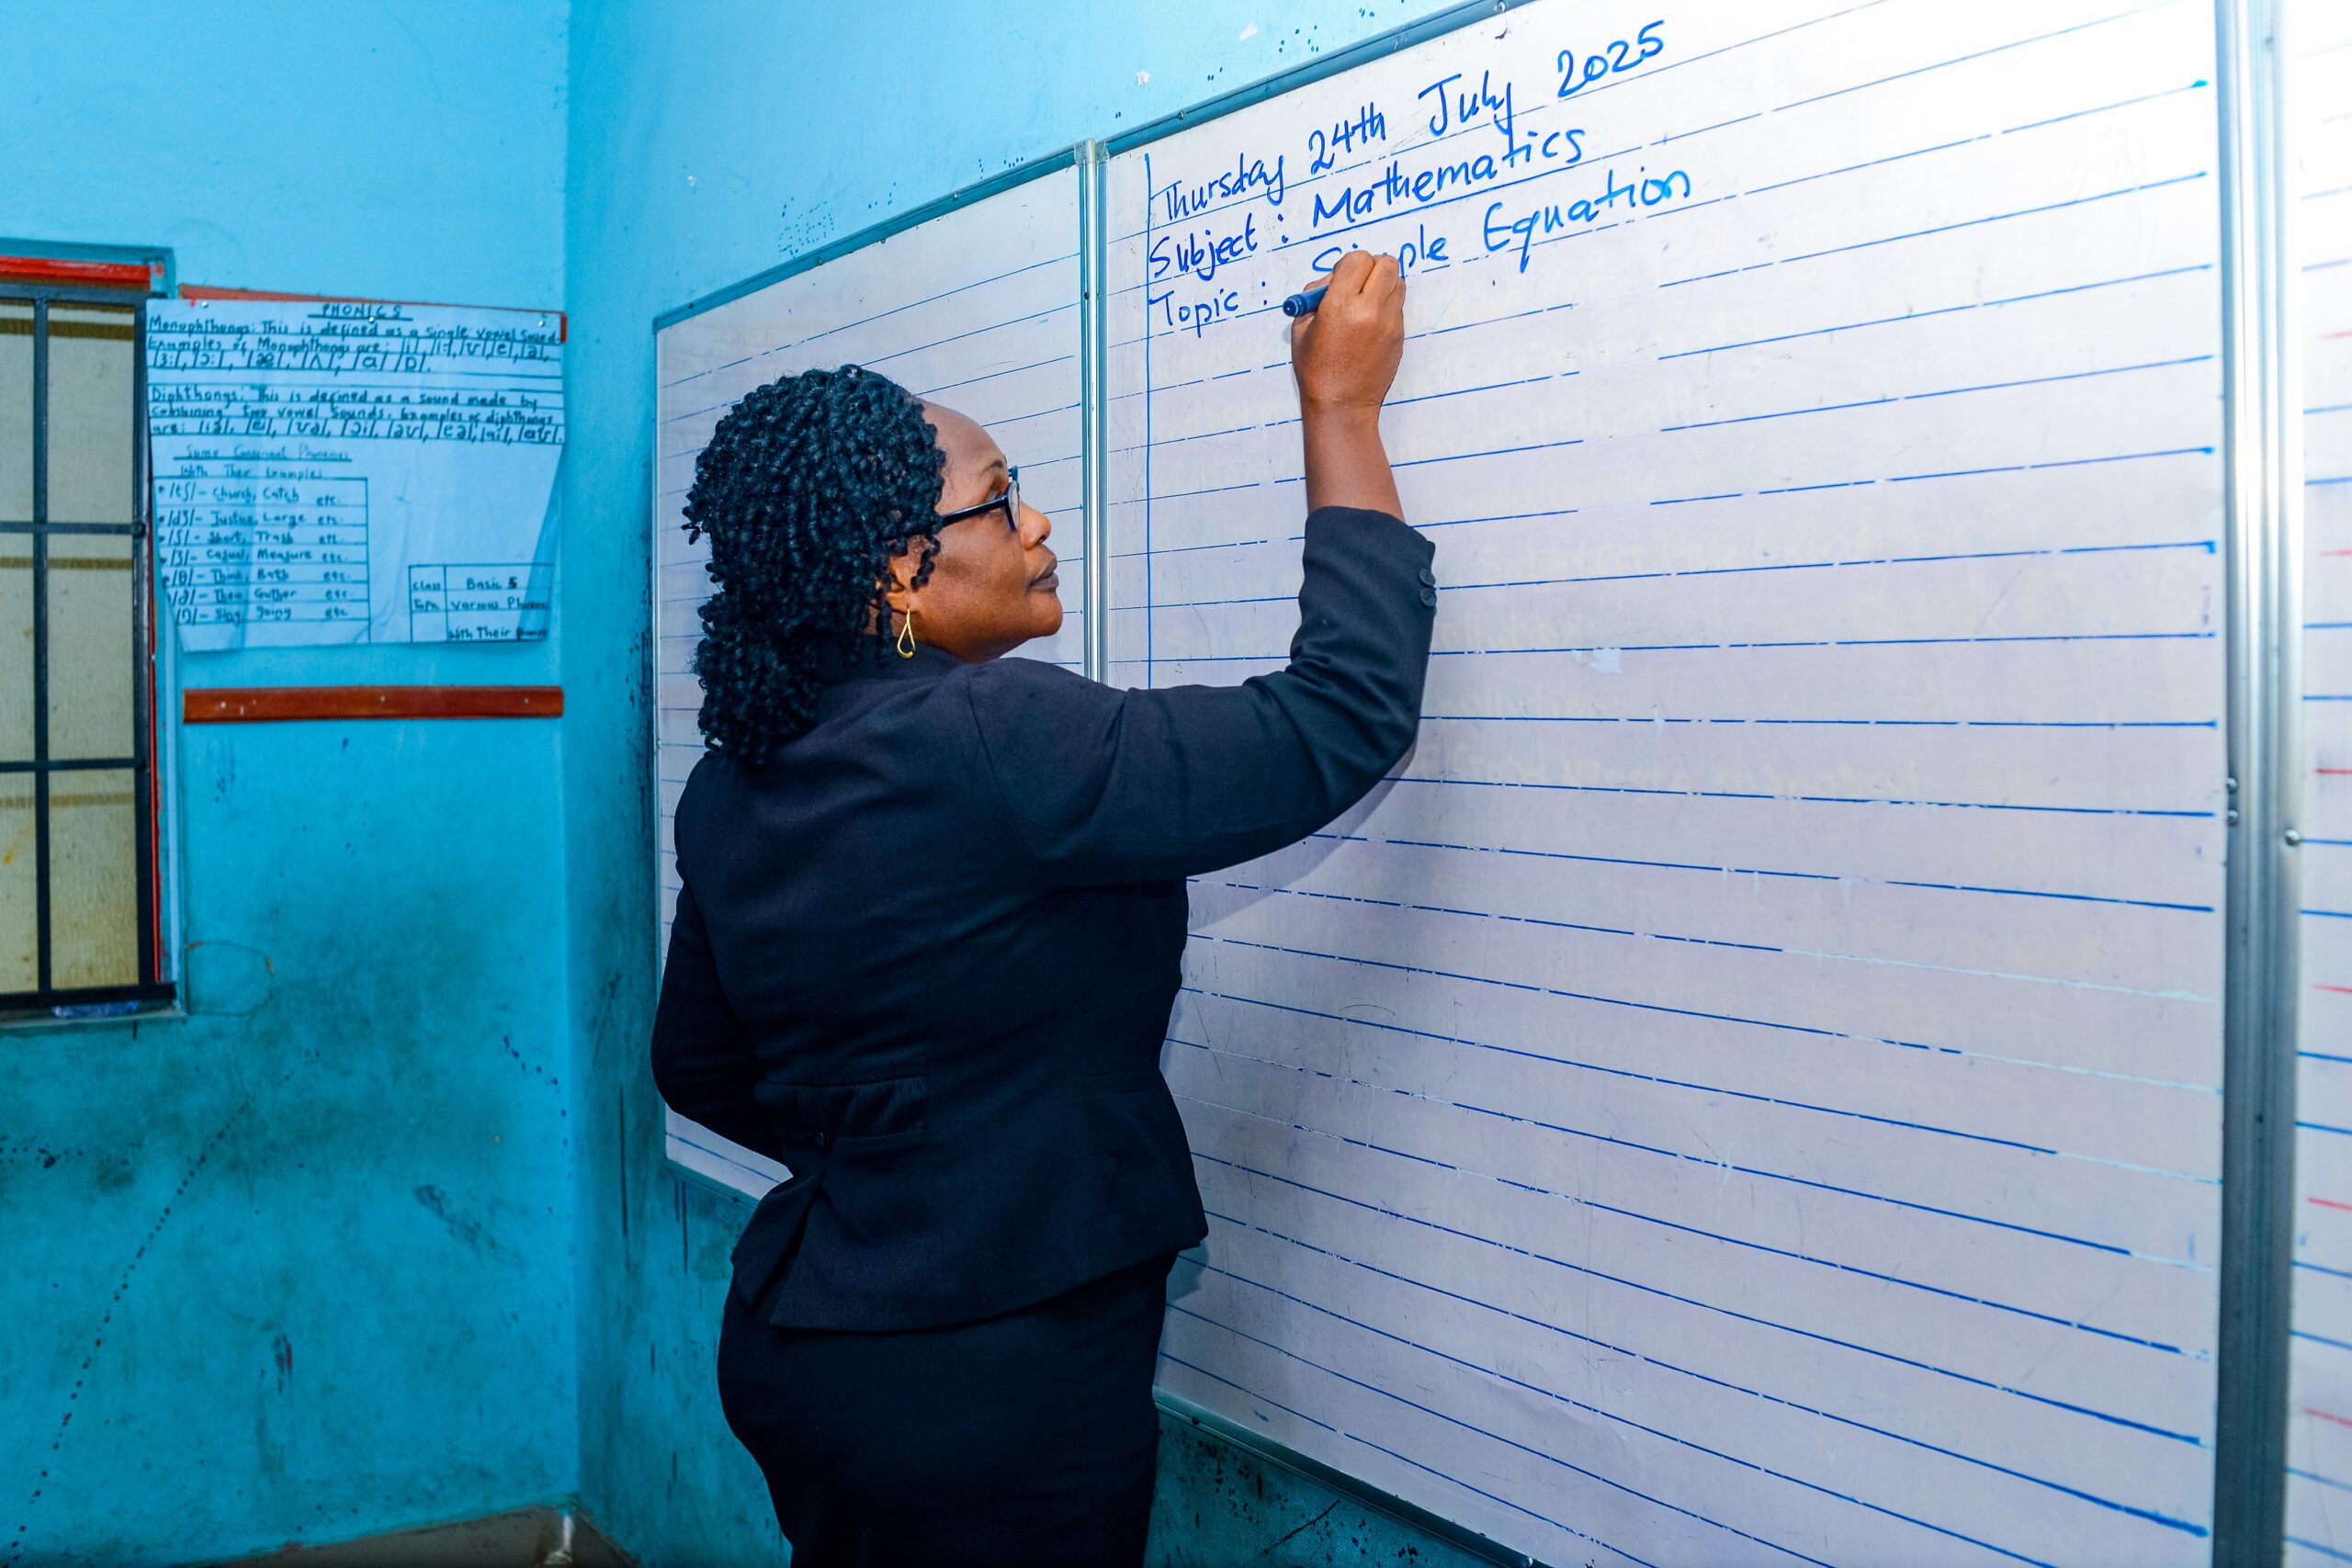 Thursday 24th July 2025
Subject : Mathematics
Topic : Simple Equation
PHONICS
Monophthongs: This is defined as a single vowel sound.
Examples of Monophthongs are: /i/, /i:/, /ʊ/, /e/, /ə/,
/3:/, /ɔ:/, /æ/, /ʌ/, /a/ /ɒ/.
Diphthongs: This is defined as a sound made by
combining two vowel sounds. Examples of diphthongs
are: /iə/, /ei/, /ʊə/, /ɔi/, /əʊ/, /eə/, /ai/, /aʊ/.
Some Consonant Phonemes
With Their Examples
• /tʃ/ - Church, Catch etc.
• /dʒ/ - Justice, Large etc.
• /ʃ/ - Short, Trash etc.
• /ʒ/ - Casual, Measure etc.
• /θ/ - Think, Bath etc.
/ð/ - Then etc.
/ŋ/ - Sing, going etc
Class Basic 5
Topic Various
With Their